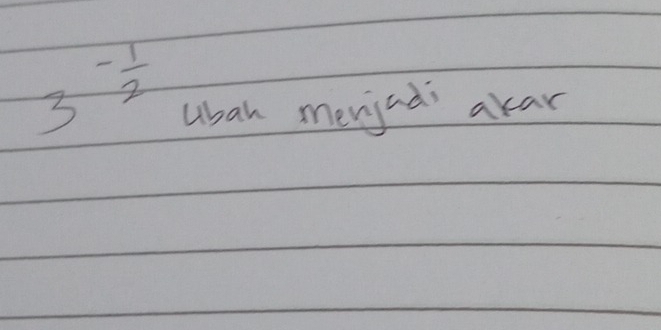 3^{-\frac{1}{2}} ubah menjadi akar